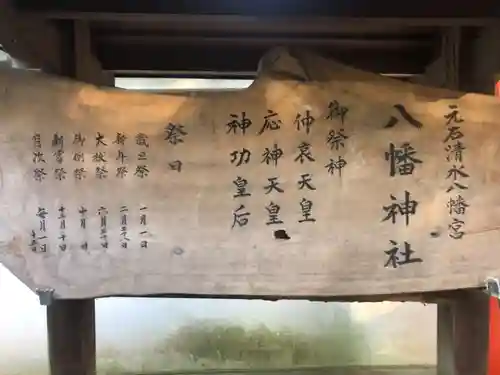 元石清水八幡宮
八幡神社
御祭神
仲哀天皇
応神天皇
神功皇后
祭日
歳旦祭 一月一日
新年祭 二月
大祓祭 六月三十日
御例祭 十月
新嘗祭
月次祭 毎月一日
十五日